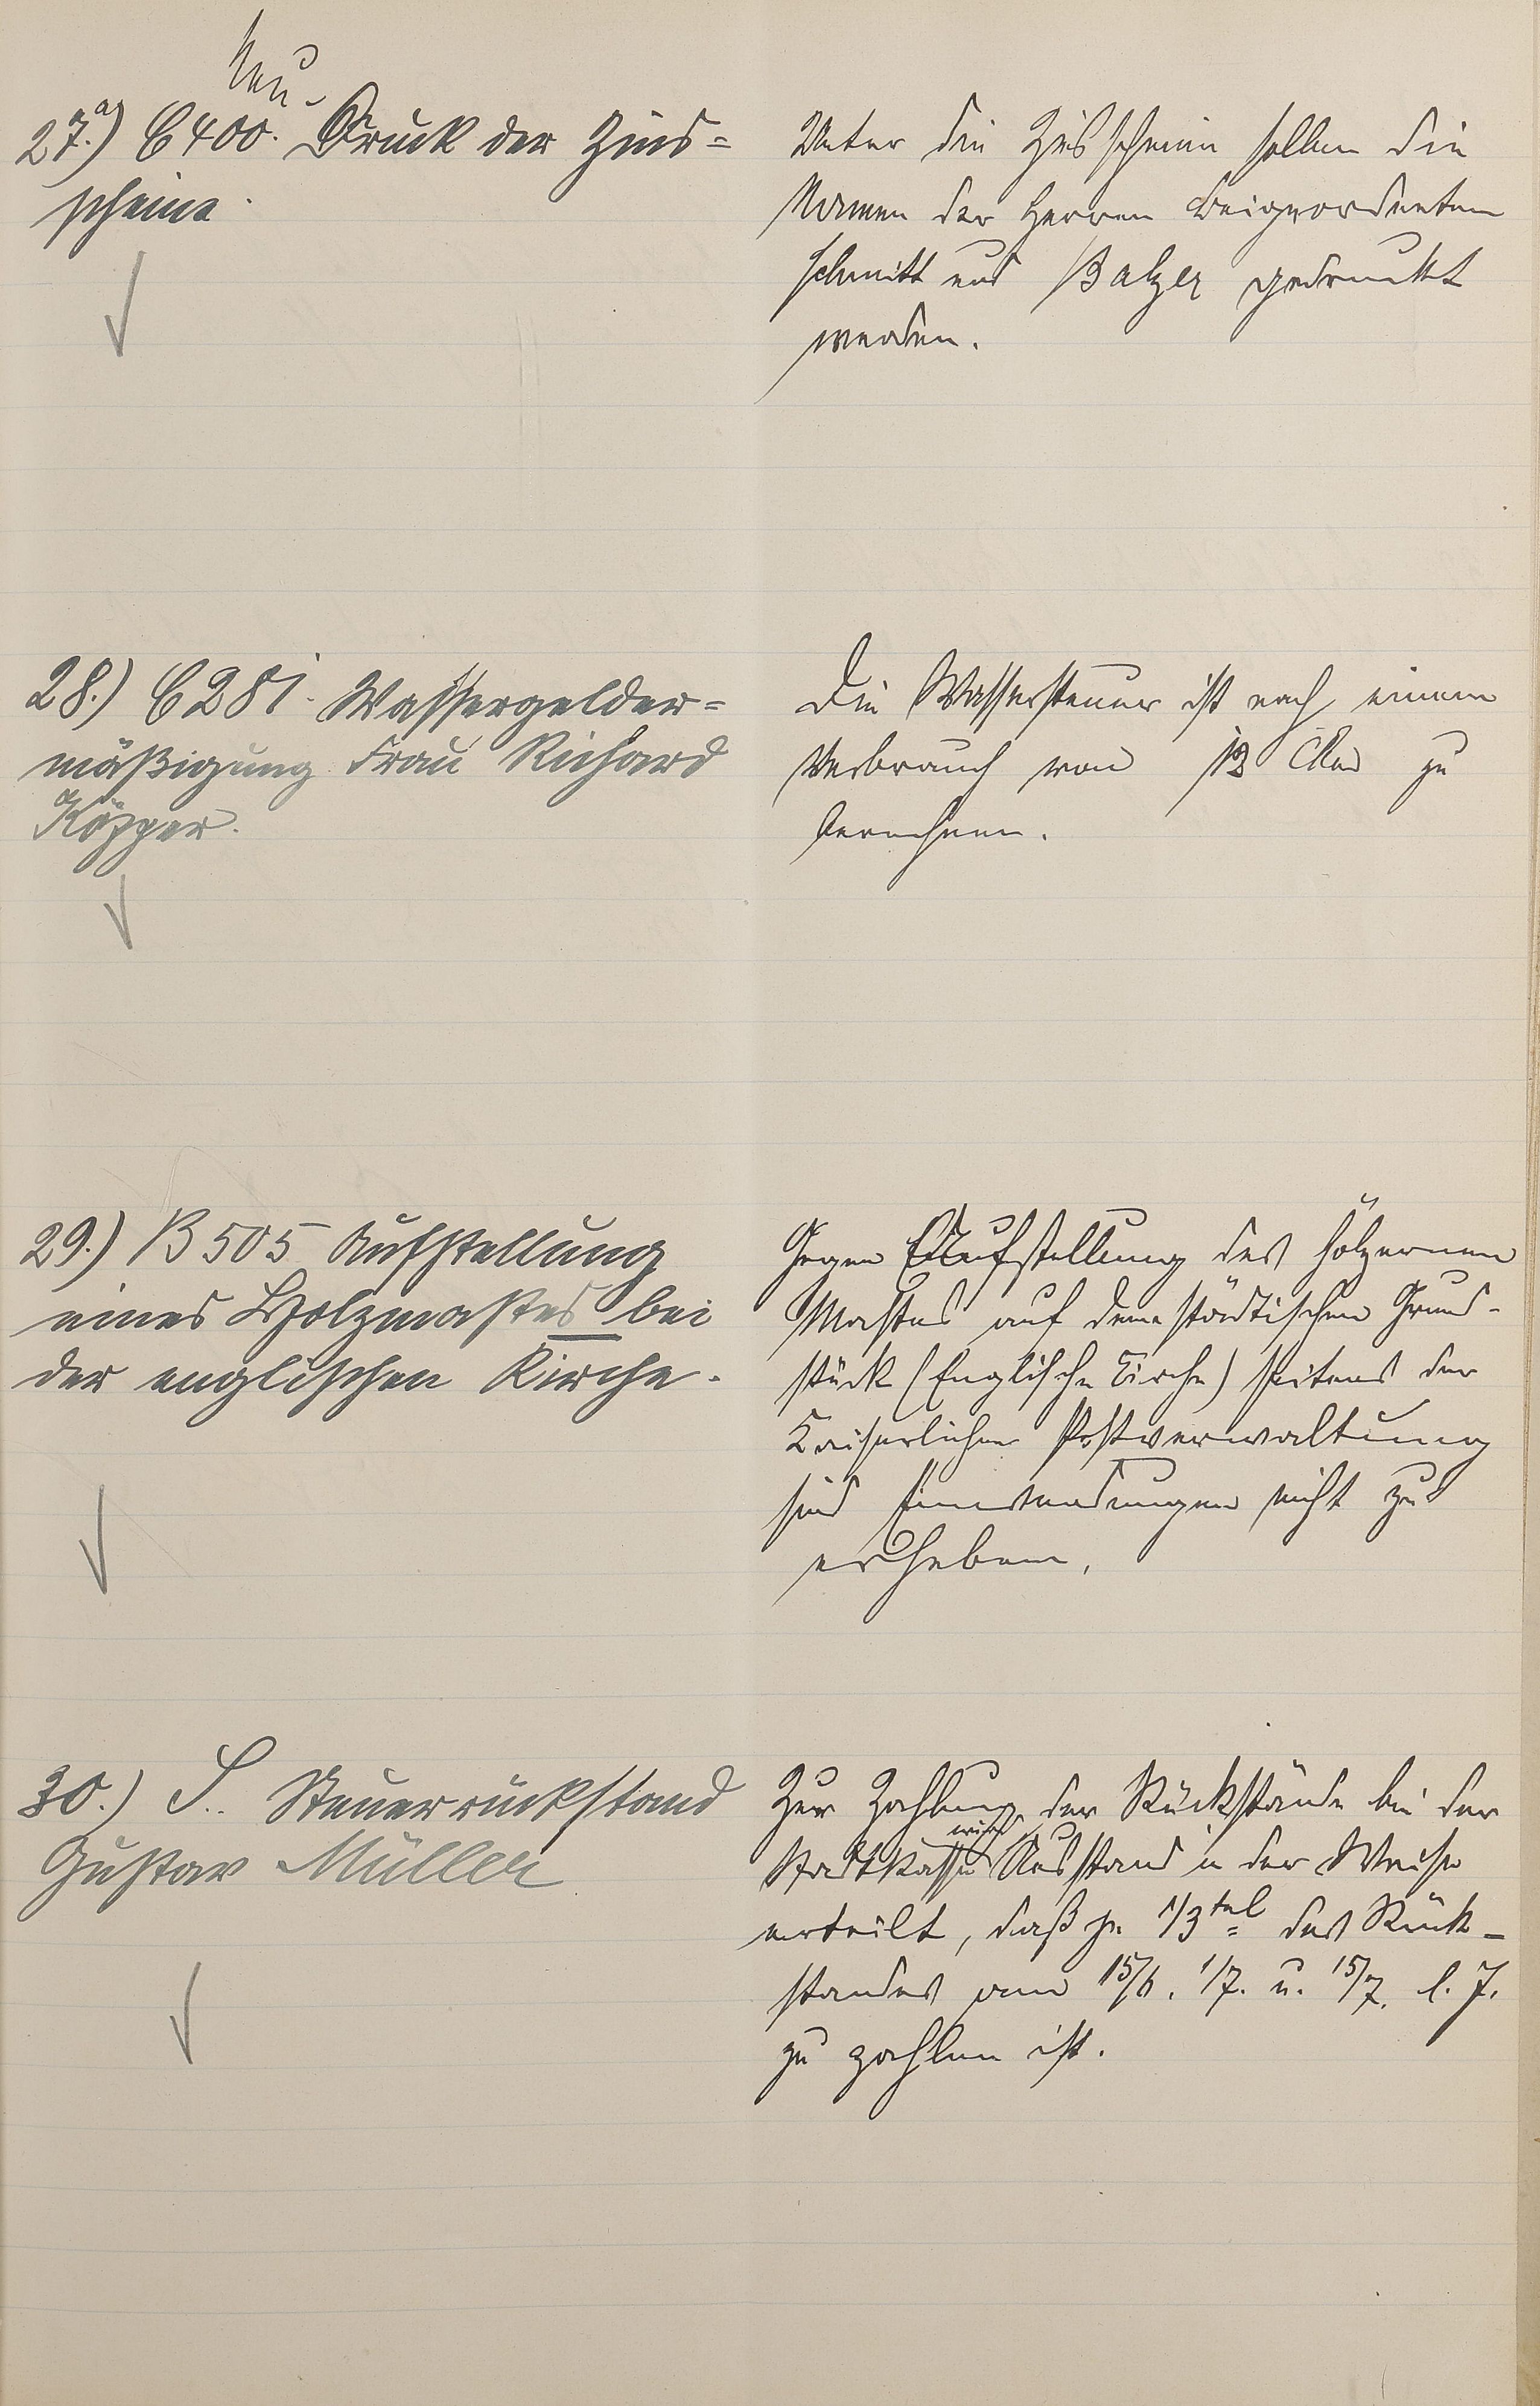 Neu-
27.a) C 400. Druck der Zins=
scheine.
Unter die Zinsscheine sollen die
Namen der Herren Beigeordneten
Schmitt und Balzer gedruckt
werden.
28.) C 281. Wassergelder=
mäßigung Frau Richard
Die Wassersteuer ist nach einem
Verbrauch von 13 Cbm zu
berechnen.
29.) B 505 Aufstellung
eines Holzmastes bei
der englischen Kirche.
Gegen Aufstellung des hölzernen
Mastes auf dem städtischen Grund-
stück (Englische Kirche) seitens der
Kaiserlichen Postverwaltung
sind Einwendungen nicht zu
erheben.
30.) S. Steuerrückstand
Gustav Müller
Zur Zahlung der Rückstände bei der
Stadtkasse wird Ausstand in der Weise
erteilt, daß je 1/3tel des Rück-
standes am 15/6. 1/7. u. 15/7. l. J.
zu zahlen ist.